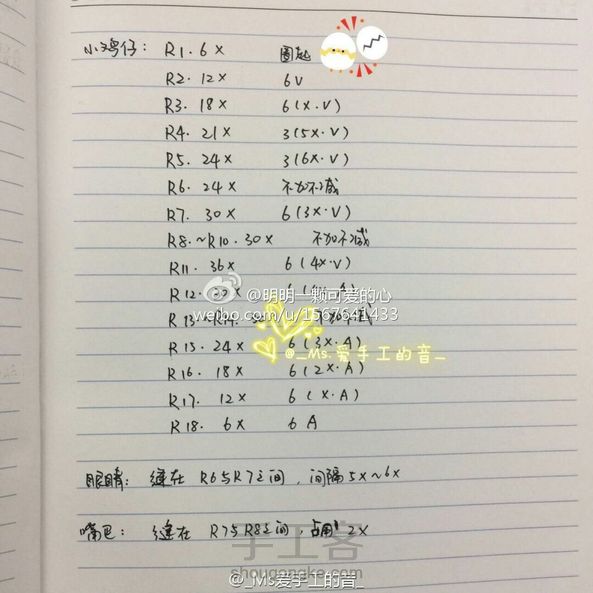 小鸡仔: R1. 6X 圈起
R2. 12X 6V
R3. 18X 6(X·V)
R4. 21X 3(5X·V)
R5. 24X 3(6X·V)
R6. 24X 不加不减
R7. 30X 6(3X·V)
R8.~R10. 30X 不加不减
R11. 36X 6(4X·V)
@明明一颗可爱的心
R12.
weibo.com/u/1567641433
R15. 24X 6(3X·A)
@_Ms.爱手工的音_
R16. 18X 6(2X·A)
R17. 12X 6(X·A)
R18. 6X 6A
眼睛: 缝在 R6与R7之间, 间隔5X~6X
嘴巴: 缝在 R7与R8之间, 占用 2X
手工客
@_Ms爱手工的音_
www.shougongke.com